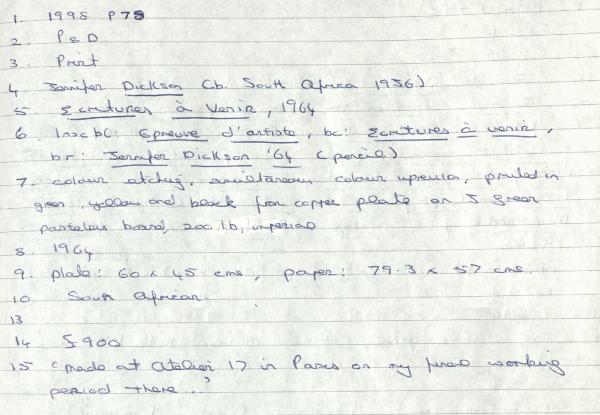 1. 1998 P75
2. P & D
3. Print
4 Jennifer Dickson (b. South Africa 1936)
5. Ecritures à Venir, 1964
6. Insc bl: Epreuve d'artiste, bc: Ecritures à venir,
br: Jennifer Dickson '64 (pencil)
7. colour etching, simultaneous colour impression, printed in
green, yellow and black from copper plate on J Green
pasteless board, 200 lb, imperial
8. 1964
9. plate: 60 x 45 cms, paper: 79.3 x 57 cms.
10 South African
13
14 $900
15 'made at Atelier 17 in Paris on my final working
period there...'